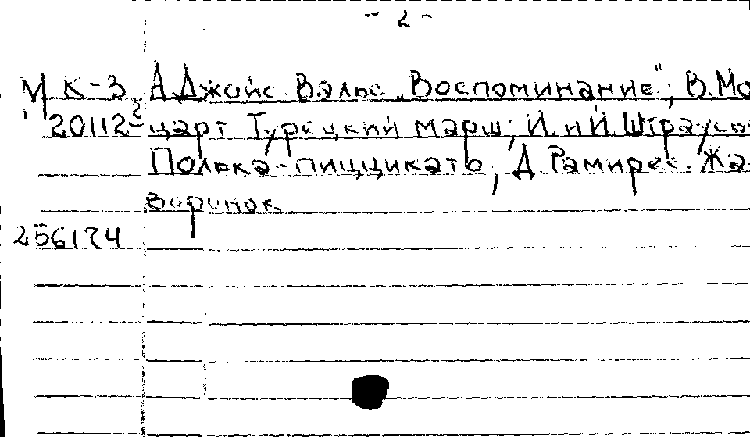 - 2 -
М К-3 А.Джойс. Вальс „Воспоминание", В.Мо
20112-2 царт Турецкий марш; И. и И. Штраусы
Полька-пиццикато; Д Рамирес. Жа
воронок
256174